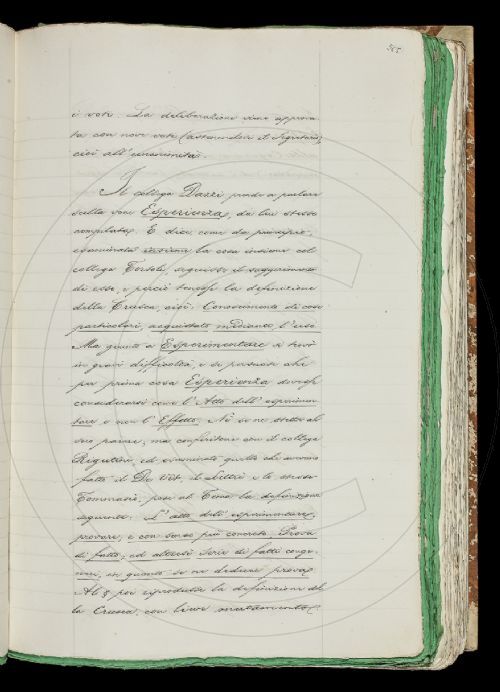 565
i voti. La deliberazione viene approva-
ta con nove voti (astenendosi il Segretario),
cioè all'unanimità.
Il collega Dazzi prende a parlare
sulla voce Esperienza, da lui stesso
compilata. E dice come da principio,
esaminata insieme la cosa insieme col
collega Tortoli, seguisse il suggerimento
di esso, e perciò tenesse la definizione
della Crusca, cioè: Conoscimento di cose
particolari, acquistato mediante l'uso.
Ma giunto a Esperimentare si trovò
in gravi difficoltà, e si persuase che
per prima cosa Esperienza dovesse
considerarsi come l'Atto dell'esperimen-
tare e non l'Effetto. Nè se ne stette al
suo parere; ma conferitone con il collega
Rigutini, ed esaminato quello che avevano
fatto il De Vit, il Littré e lo stesso
Tommaseo, pose al Tema la definizione
seguente: L'atto dell'esperimentare,
provare, e con senso più concreto, Prova
di fatto; ed altresì Serie di fatti congе-
neri, in quanto se ne deduce prova.
Al § poi riprodusse la definizione del-
la Crusca, con lieve mutamento,